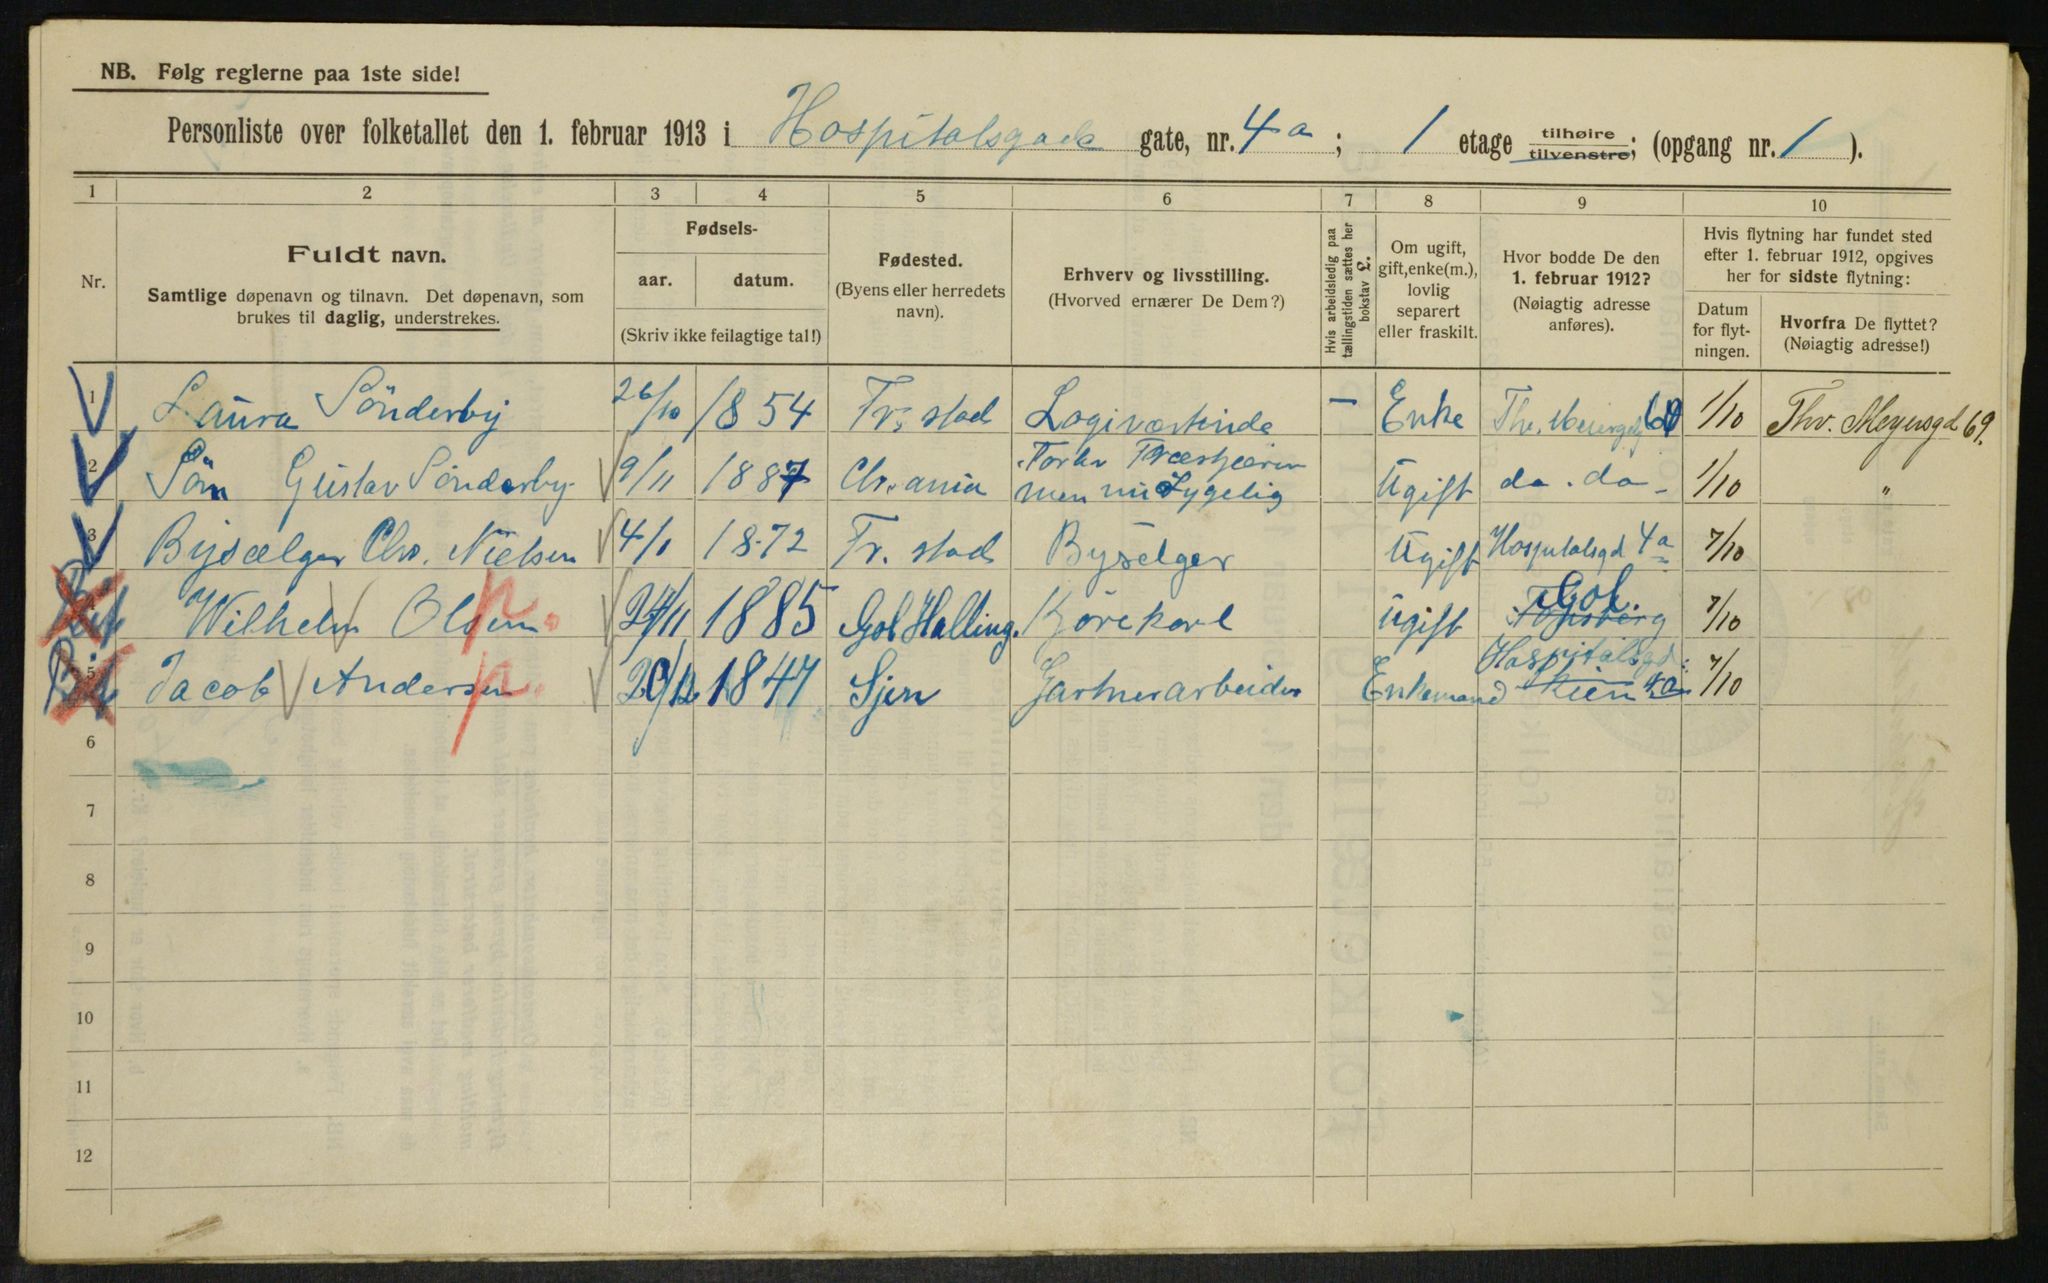 NB. Følg reglerne paa 1ste side!
Personliste over folketallet den 1. februar 1913 i Hospitalsgade gate, nr. 4a ; 1 etage tilhøire tilvenstre; (opgang nr. 1 ).
1 2 3 4 5 6 7 8 9 10
Nr.
Fuldt navn.
Samtlige døpenavn og tilnavn. Det døpenavn, som
brukes til daglig, understrekes.
Fødsels-
aar. datum.
(Skriv ikke feilagtige tal!)
Fødested.
(Byens eller herredets
navn).
Erhverv og livsstilling.
(Hvorved ernærer De Dem?)
Hvis arbeidsledig paa
tællingstiden sættes her
bokstav L.
Om ugift,
gift, enke(m.),
lovlig
separert
eller fraskilt.
Hvor bodde De den
1. februar 1912?
(Nøiagtig adresse
anføres).
Hvis flytning har fundet sted
efter 1. februar 1912, opgives
her for sidste flytning:
Datum
for flyt-
ningen.
Hvorfra De flyttet?
(Nøiagtig adresse!)
1 Laura Sönderby 26/10 1854 Fr. stad Logivertinde — Enke Thv. Meiergd 69 1/10 Thv. Meyersgd 69.
2 Sön Gustav Sönderby 9/11 1887 Chr. ania Forhv
men nu Sygelig Ugift do. do 1/10 "
3 Bysælger Chr. Nielsen 4/1 1872 Fr. stad Byselger Ugift Hospitalsgd 4a 7/10
4 Wilhelm Olsen 24/11 1885 Gol Halling. Kjörekarl Ugift Tønsberg Gol. 7/10
5 Jacob Andersen 29/12 1847 Sjen Gartnerarbeider Enkemand Skien Hospitalsgd. 4a 7/10
6
7
8
9
10
11
12